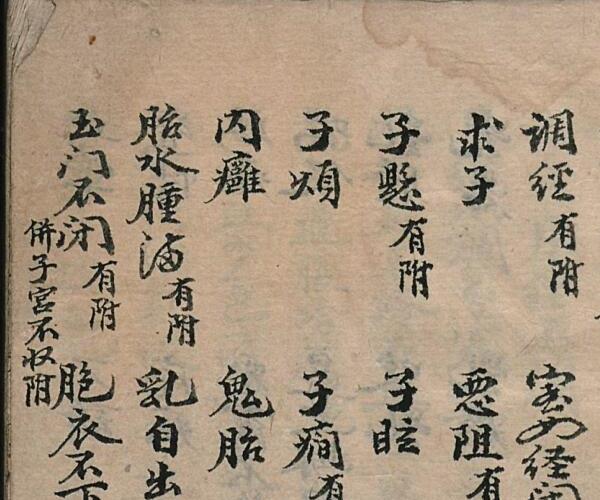 调經有附
室女经闭
求子
恶阻有
子懸有附
子眩
子煩
子癎有
内癰
鬼胎
胎水腫滿有附
乳自出
玉门不闭有附
胞衣不下
併子宫不收附